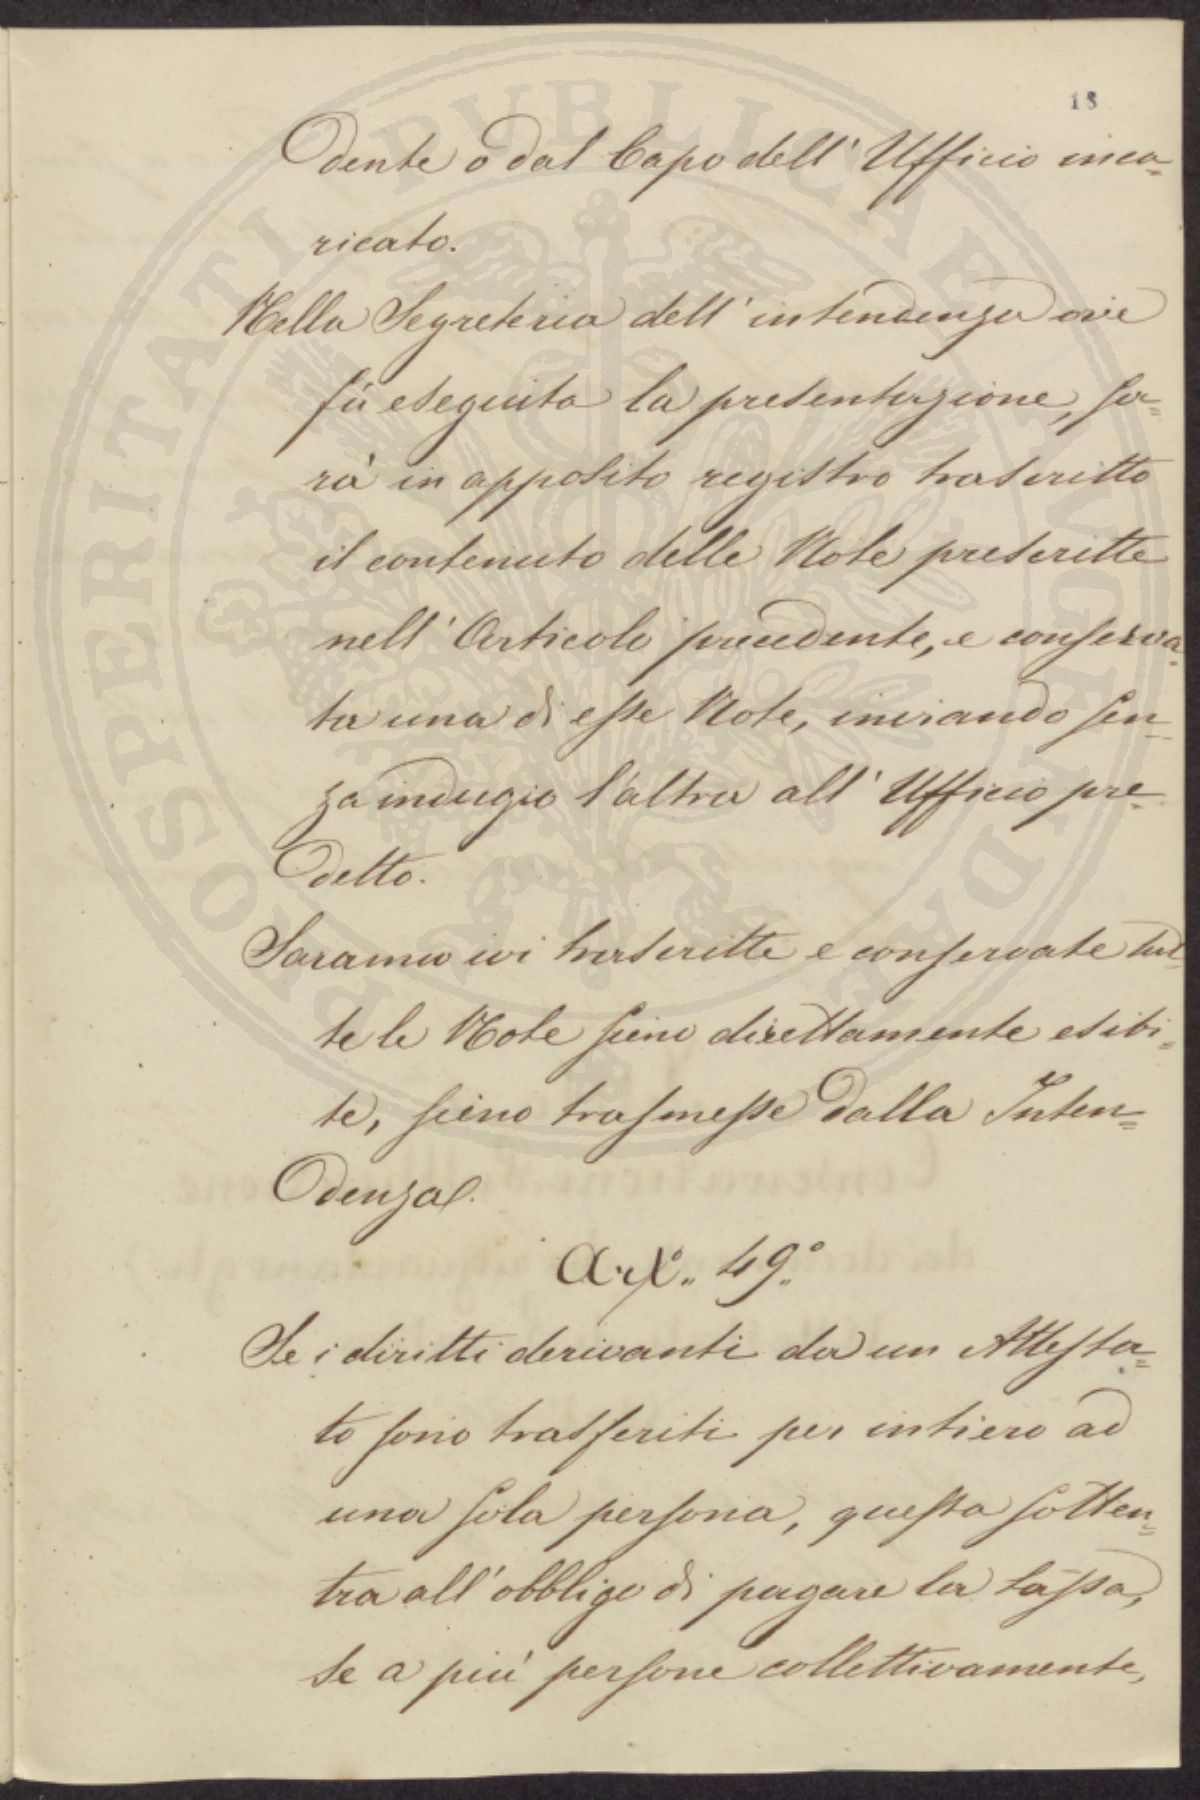 18
dente o dal Capo dell' Ufficio inca=
ricato.
Nella Segreteria dell' intendenza ove
fù eseguita la presentazione, sa=
rà in apposito registro trascritto
il contenuto delle Note prescritte
nell' Articolo precedente, e conserva=
ta una di esse Note, inviando sen=
za indugio l'altra all' Ufficio pre=
detto.
Saranno ivi trascritte e conservate tut=
te le Note sieno direttamente esibi=
te, sieno trasmesse dalla Inten=
denza.
Art.° 49.°
Se i diritti derivanti da un Attesta=
to sono trasferiti per intiero ad
una sola persona, questa sotten=
tra all' obbligo di pagare la tassa,
se a più persone collettivamente,
PROSPERITATI PUBLICAE AUGENDAE